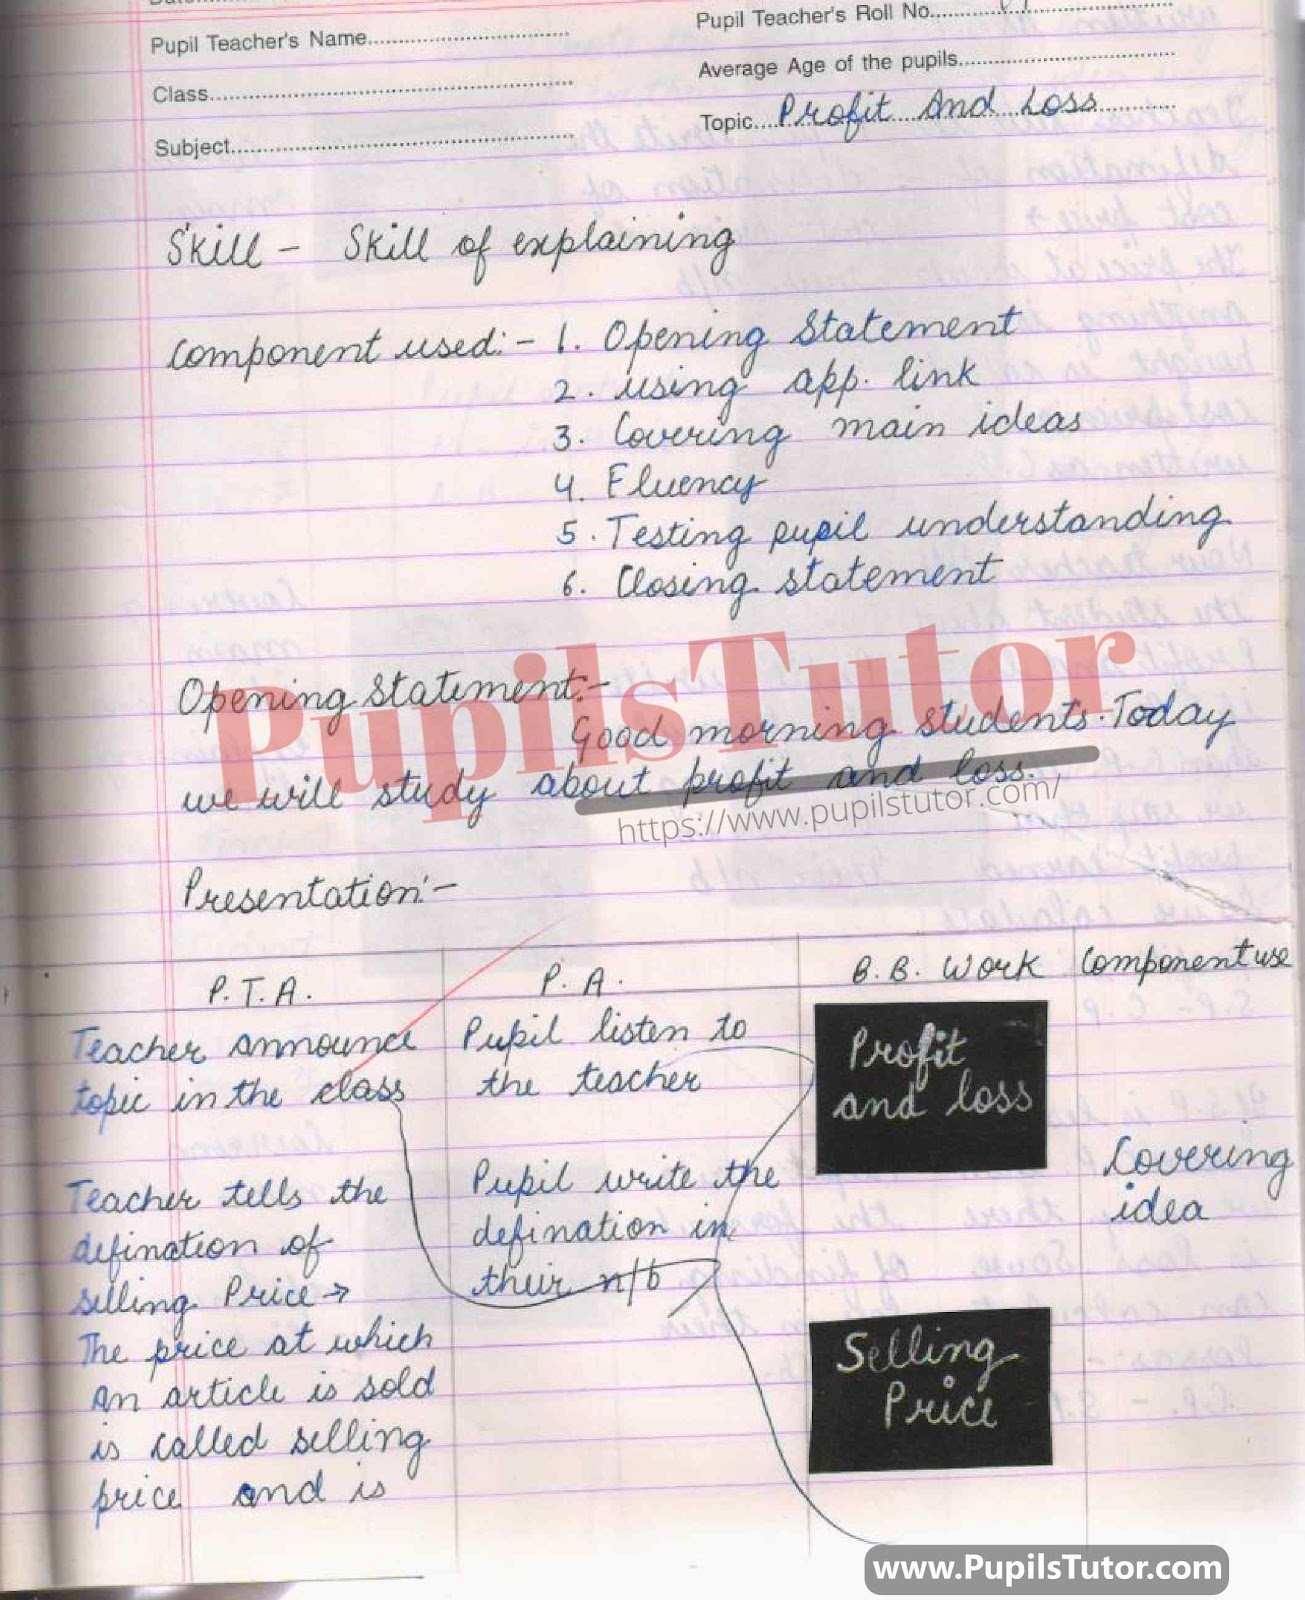 Pupil Teacher's Name
Pupil Teacher's Roll No.
Class
Average Age of the pupils
Subject
Topic Profit And Loss
Skill - Skill of explaining
Component used:- 1. Opening Statement
2. using app. link
3. Covering main ideas
4. Fluency
5. Testing pupil understanding
6. Closing statement
PupilsTutor
Opening Statement:-
Good morning students. Today
we will study about profit and loss.
https://www.pupilstutor.com/
Presentation:-
P.T.A. P.A. B.B. Work Component use
Teacher announce
topic in the class
Pupil listen to
the teacher
Profit
and loss
Teacher tells the
defination of
selling Price →
The price at which
an article is sold
is called selling
price and is
Pupil write the
defination in
their n/b
Selling
Price
Covering
idea
www.PupilsTutor.com